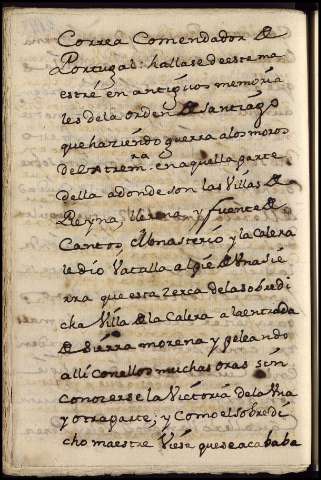 Correa Comendador de
Portugal: hallase de este ma
estre en antiguos memoria
les dela orden de santiago
que haziendo guerra alos moros
de Extrem.ra en aquella parte
della adonde son las Villas de
Reyna, llerena, y fuente de
Cantos, Monasterio, y la Calera
le dio Vatalla al pie de Vna sie
rra que esta zerca dela sobredi
cha Villa de la Calera a la entrada
de sierra morena y peleando
alli con ellos muchas oras sin
conozerse la Victoria dela Vna
y otra parte; y como el sobredi
cho maestre Viese que se acababa